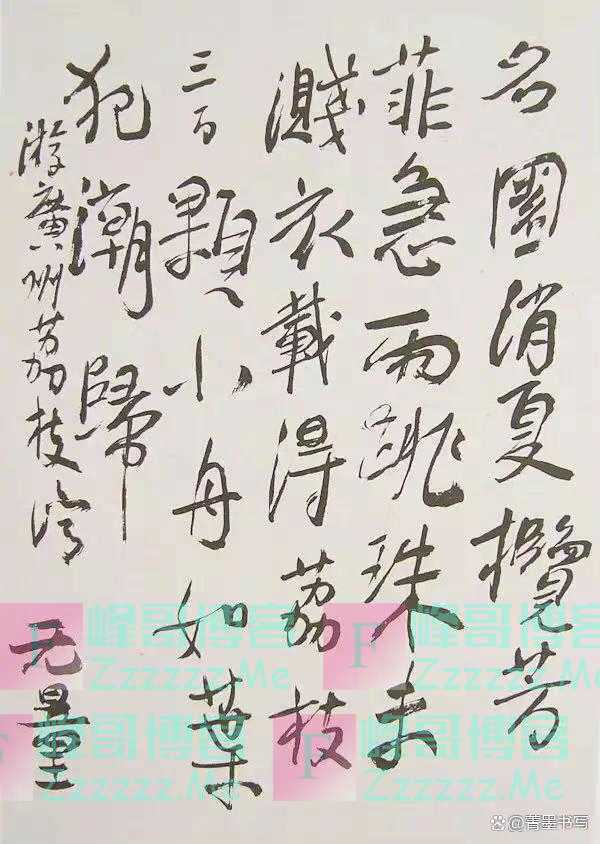 名園消夏攬芳
菲急雨跳珠未
濺衣載得荔枝
三百顆小舟如葉
犯潮歸
游廣州荔枝灣 无量
F 峰哥博客
Zzzzzz.Me
F 峰哥博客
Zzzzzz.Me
峰哥博客
Zzzzzz.Me
F 峰哥博客
Zzzzzz.Me
@菁墨书写